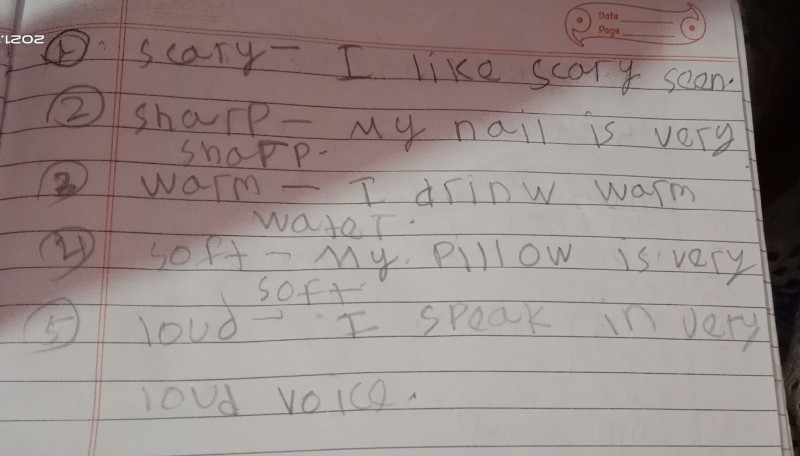 2021.
Date
Page
1. scary - I like scary seen.
2 sharp - My nail is very
sharp.
3 warm - I drinw warm
water.
4 soft - My. Pillow is very
soft
5 loud - I speak in very
loud voice.